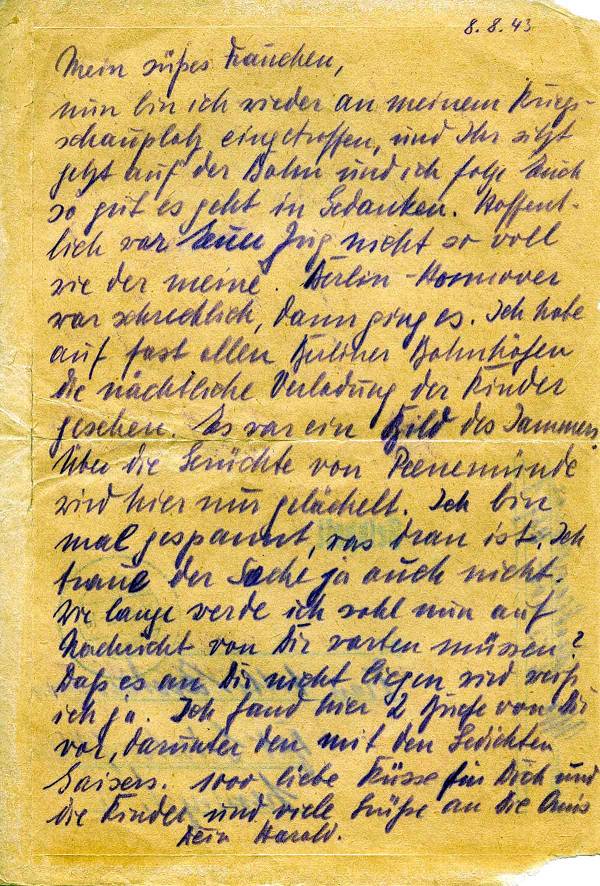 8. 8. 43
Mein süßes Frauchen,
nun bin ich wieder an meinem Kriegs-
schauplatz eingetroffen, und Ihr sitzt
jetzt auf der Bahn und ich folge Euch
so gut es geht in Gedanken. Hoffent-
lich war Euer Zug nicht so voll
wie der meine. Berlin-Hannover
war schrecklich, dann ging es. Ich habe
auf fast allen Berliner Bahnhöfen
die nächtliche Verladung der Kinder
gesehen. Es war ein Bild des Jammers.
Über die Gerüchte von Peenemünde
wird hier nur gelächelt. Ich bin
mal gespannt, was dran ist. Ich
traue der Sache ja auch nicht.
Wie lange werde ich wohl nun auf
Nachricht von Dir warten müssen?
Daß es an Dir nicht liegen wird weiß
ich ja. Ich fand hier 2 Briefe von Dir
vor, darunter den mit den Gedichten
Gaisers. 1000 liebe Küsse für Dich und
die Kinder und viele Grüße an die Omis
Dein Harald.